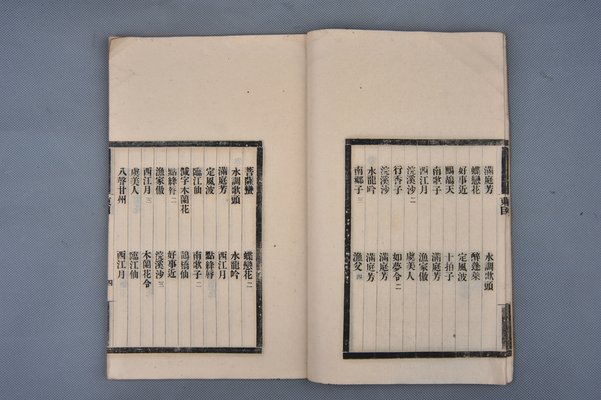 滿庭芳　水調歌頭
蝶戀花　醉蓬萊
好事近　定風波
鷓鴣天　十拍子
南歌子　滿庭芳
西江月　漁家傲
浣溪沙二　虞美人
行香子　如夢令二
浣溪沙　滿庭芳
水龍吟　滿庭芳
南鄉子三　漁父四
菩薩蠻　蝶戀花二
水調歌頭　水龍吟
滿庭芳　西江月
定風波　點絳脣
臨江仙　南歌子二
減字木蘭花　鵲橋仙
點絳脣二　好事近
漁家傲　浣溪沙三
西江月三　木蘭花令
虞美人　臨江仙
八聲甘州　西江月
四